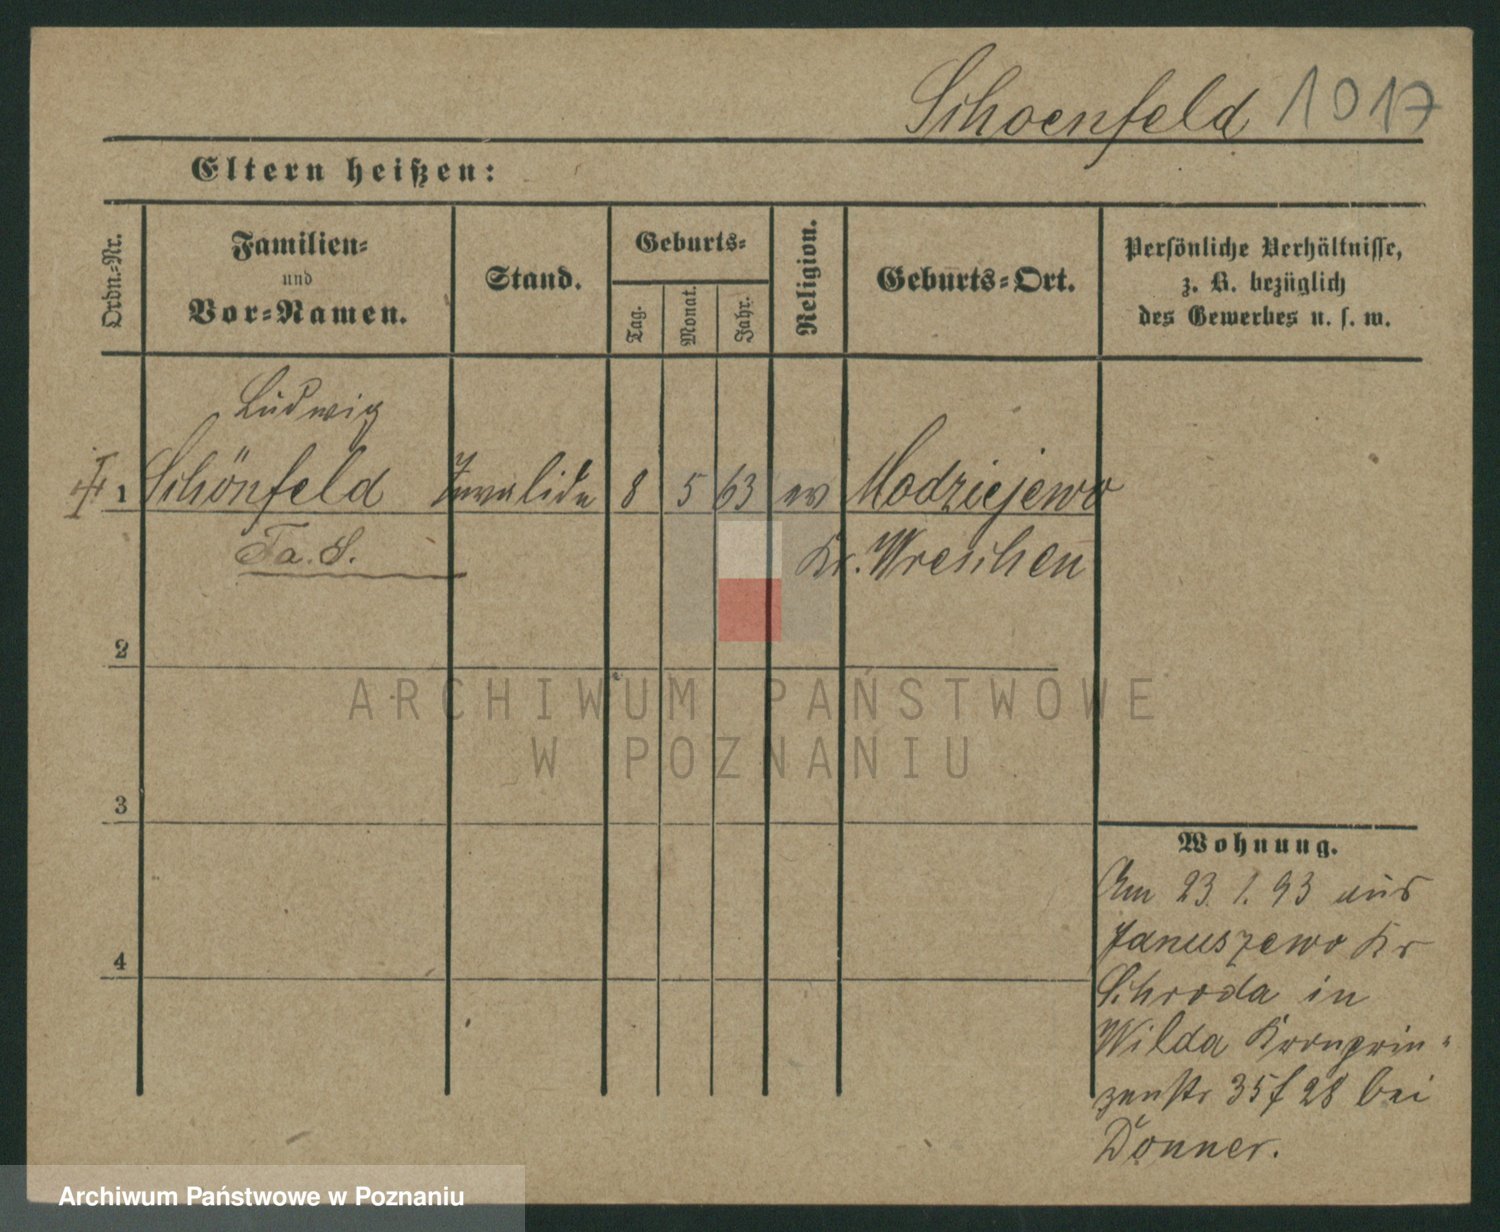 Schoenfeld 1017
Eltern heißen:
Ordn.-Nr.
Familien-
und
Vor-Namen.
Stand.
Geburts-
Tag.
Monat.
Jahr.
Religion.
Geburts-Ort.
Persönliche Verhältnisse,
z. B. bezüglich
des Gewerbes u. s. w.
Ludwig
1 Schönfeld Invalide 8 5 63 ev Modziejewo
Fa. S. Kr. Wreschen
2
ARCHIWUM PAŃSTWOWE
W POZNANIU
3
Wohnung.
Am 23. 1. 93 aus
Januszewo Kr
Schroda in
4
Wilda Kronprin-
zenstr 35 f 28 bei
Donner.
Archiwum Państwowe w Poznaniu